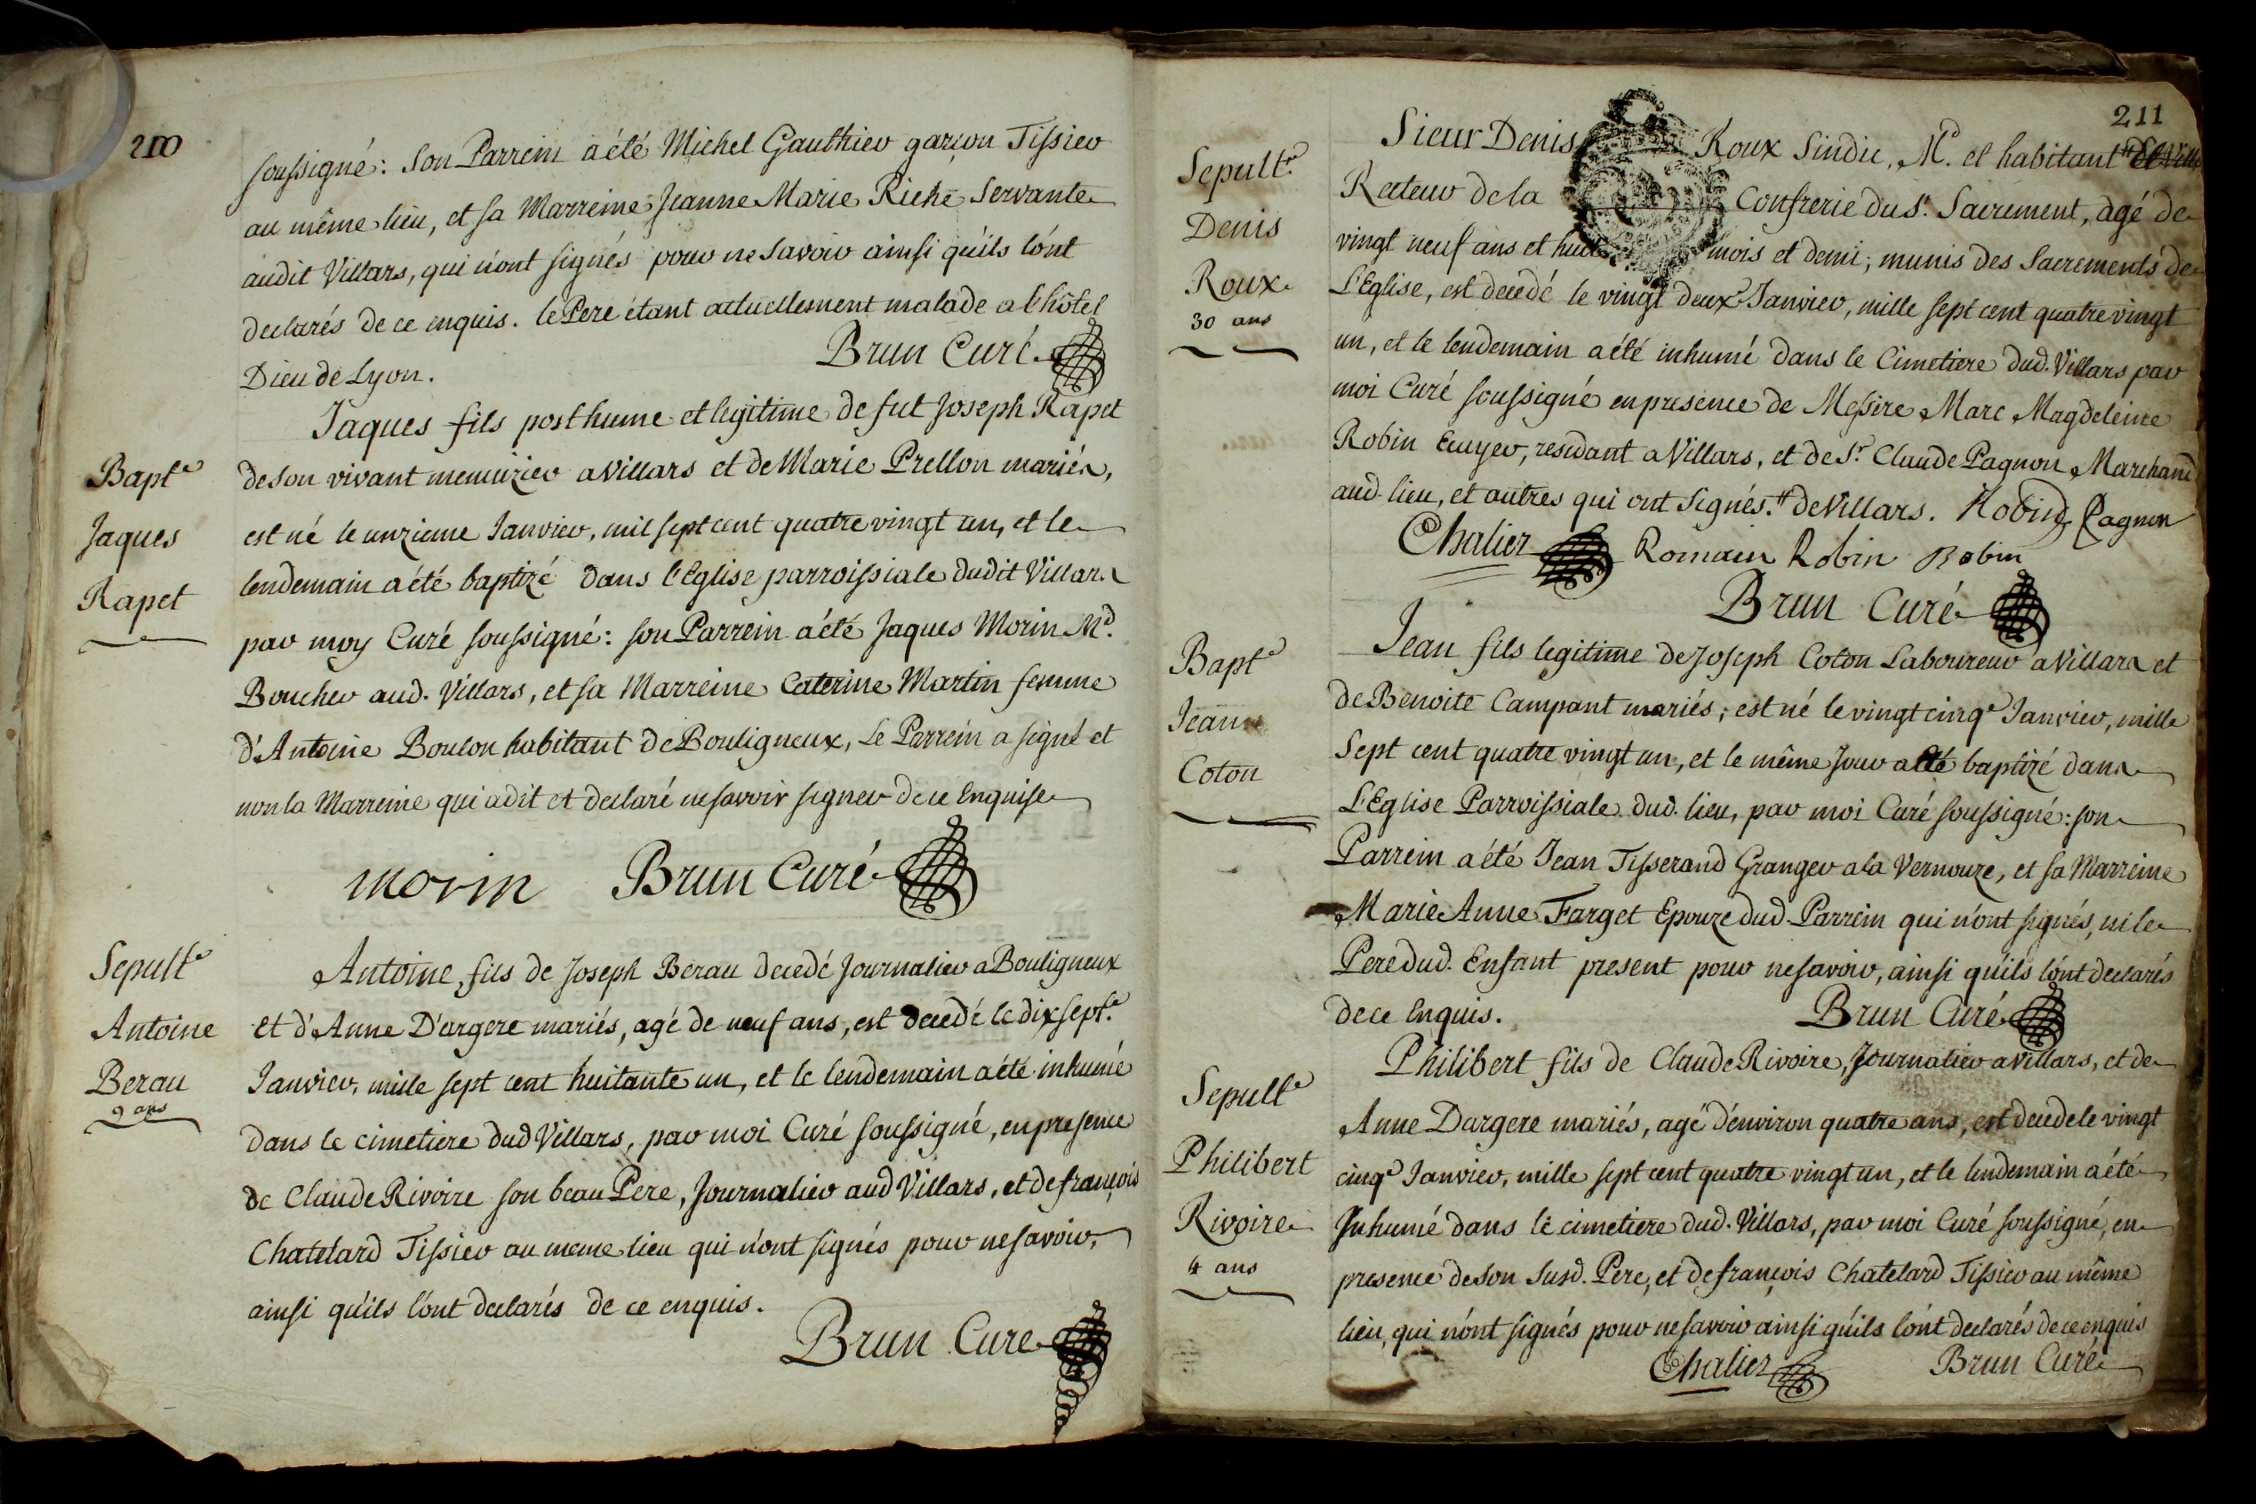 210
soussigné: Son Parrein a été Michel Gauthier garçon Tissier
au même lieu, et sa Marreine Jeanne Marie Riche Servante
audit Villars, qui n'ont signés pour ne savoir ainsi qu'ils l'ont
declarés de ce enquis. le Pere étant actuellement malade a l'hôtel
Dieu de Lyon.
Brun Curé
Bapt.e
Jaques
Rapet
Jaques fils posthume et legitime de fut Joseph Rapet
de son vivant menuizier a Villars et de Marie Prellon mariés,
est né le unzieme Janvier, mil sept cent quatre vingt un, et le
lendemain a été baptizé dans l'Eglise parroissiale dudit Villars
par moy Curé soussigné: son Parrein a été Jaques Morin M.d
Boucher aud. Villars, et sa Marreine Caterine Martin femme
d'Antoine Bouton habitant de Bouligneux, Le Parrein a signé et
non la Marreine qui a dit et declaré ne savoir signer de ce Enquise
morin Brun Curé
Sepult.e
Antoine
Berau
9 ans
Antoine, fils de Joseph Berau decedé Journalier a Bouligneux
et d'Anne D'argere mariés, agé de neuf ans, est decedé le dix sept.e
Janvier, mille sept cent huitante un, et le lendemain a été inhumé
dans le cimetiere dud Villars, par moi Curé soussigné, en presence
de Claude Rivoire son beau Pere, Journalier aud Villars, et de françois
Chatelard Tissier au meme lieu qui n'ont signés pour ne savoir,
ainsi qu'ils l'ont declarés de ce enquis.
Brun Cure
211
Sepult.e
Denis
Roux
30 ans
Sieur Denis Roux Sindic, M.d et habitant
Recteur de la Confrerie du S.t Sacrement, agé de
vingt neuf ans et huit mois et demi; munis des Sacrements de
L'Eglise, est decedé le vingt deux Janvier, mille sept cent quatre vingt
un, et le lendemain a été inhumé dans le Cimetiere dud. Villars par
moi Curé soussigné en presence de Messire Marc Magdeleine
Robin Ecuyer, residant a Villars, et de S.r Claude Pagnon Marchand
aud. lieu, et autres qui ont signés. # de Villars. Robin Pagnon
Chalier Romain Robin Robin
Brun Curé
Bapt.e
Jean
Coton
Jean fils legitime de Joseph Coton Laboureur a Villars et
de Benoite Campant mariés; est né le vingt cinq.e Janvier, mille
Sept cent quatre vingt un, et le même jour a été baptizé dans
L'Eglise Parroissiale dud. lieu, par moi Curé soussigné: son
Parrein a été Jean Tisserand Granger a la Vernouze, et sa Marreine
Marie Anne Farget Epouze dud. Parrein qui n'ont signés, ni le
Pere dud. Enfant present pour ne savoir, ainsi qu'ils l'ont declarés
de ce Enquis.
Brun Curé
Sepult.e
Philibert
Rivoire
4 ans
Philibert fils de Claude Rivoire, Journalier a Villars, et de
Anne Dargere mariés, agé d'environ quatre ans, est decede le vingt
cinq.e Janvier, mille sept cent quatre vingt un, et le lendemain a été
Inhumé dans le cimetiere dud. Villars, par moi Curé soussigné, en
presence de son susd. Pere, et de françois Chatelard Tissier au même
lieu, qui n'ont signés pour ne savoir ainsi qu'ils l'ont declarés de ce enquis
Chalier Brun Curé